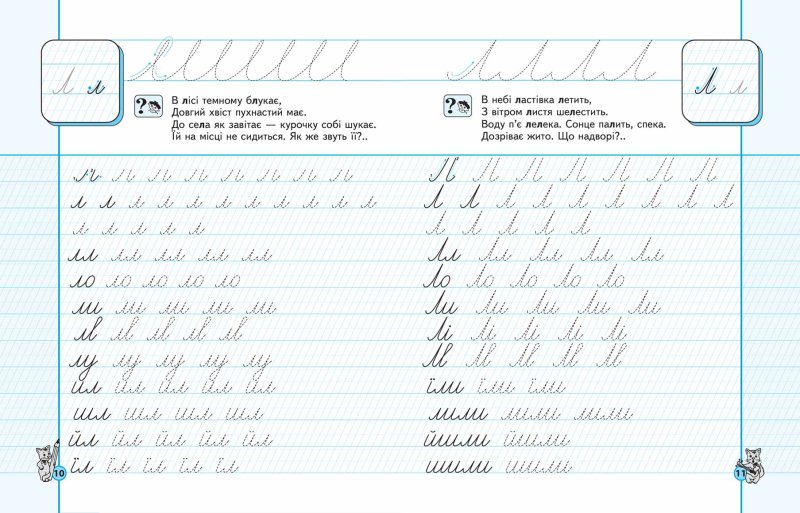 Л л
В лісі темному блукає,
Довгий хвіст пухнастий має.
До села як завітає — курочку собі шукає.
Їй на місці не сидиться. Як же звуть її?..
л л л л л л л л л л л
л л л л л
лл лл лл лл лл
ло ло ло ло ло
ли ли ли ли ли
лв лв лв лв лв
лу лу лу лу лу
ил ил ил ил ил
шл шл шл шл
йл йл йл йл йл
їл їл їл їл їл
10
Л л
В небі ластівка летить,
З вітром листя шелестить.
Воду п'є лелека. Сонце палить, спека.
Дозріває жито. Що надворі?..
Л Л Л Л Л Л Л Л Л
Л Л Л Л Л
Лл Лл Лл Лл Лл
Ло Ло Ло Ло Ло
Ли Ли Ли Ли Ли
Лі Лі Лі Лі Лі
Лв Лв Лв Лв Лв
їли їли їли
лили лили лили
йшли йшли
шили шили
11